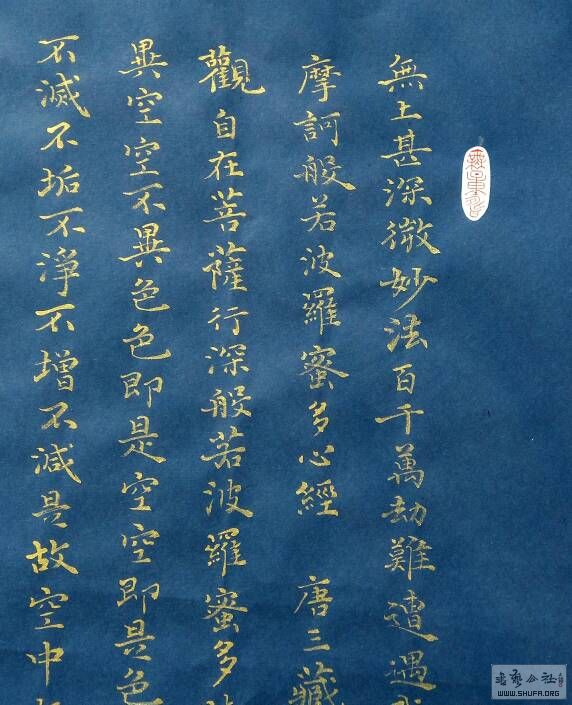 無上甚深微妙法百千萬劫難遭遇我
摩訶般若波羅蜜多心經 唐三藏
觀自在菩薩行深般若波羅蜜多
異空空不異色色即是空空即是色
不滅不垢不淨不增不減是故空中
書藝公社
WWW.SHUFA.ORG